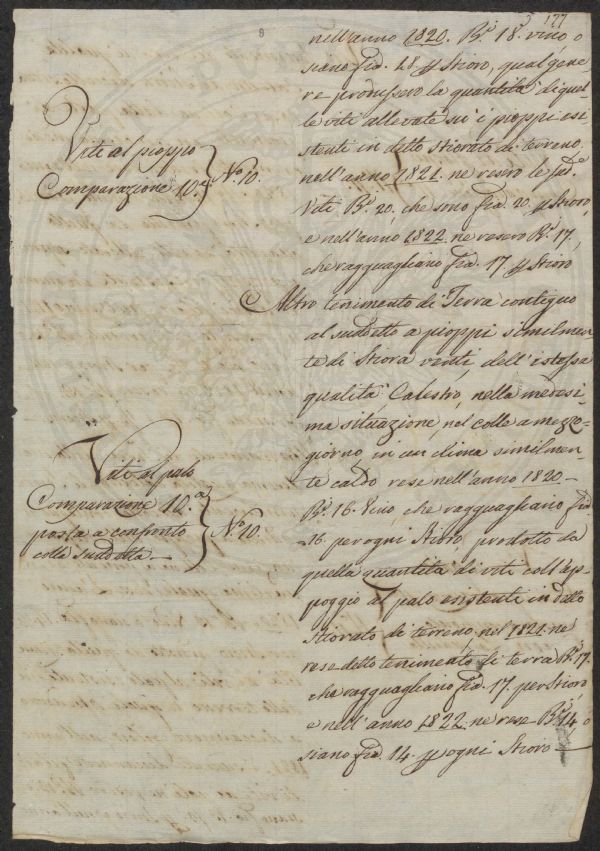 177
nell'anno 1820. B.i 18. vino, o
siano fia. 18 p Stioro, qual gene
re produssero la quantità di quel
le viti allevate su' i pioppi esi
stenti in detto Stiorato di terreno,
nell'anno 1821. ne resero le sud.e
Viti B.i 20, che sono fia. 20. p Stioro,
e nell'anno 1822. ne resero B.i 17,
che ragguagliano fia. 17 p Stioro
Viti al pioppo
Comparazione 10.a N.o 10.
Altro tenimento di Terra contiguo
al suddetto a pioppi similmen
te di Stiora venti dell'istessa
qualità Calestro, nella medesi-
ma situazione, nel colle a mezzo-
giorno, in un clima similmen
te caldo rese nell'anno 1820 –
B.i 16. Vino che ragguagliano fia
16. per ogni Stioro, prodotto da
quella quantità di viti coll'ap
poggio al palo esistenti in detto
Stiorato di terreno, nel 1821. ne
rese detto tenimento di terra B.i 17.
che ragguagliano fia. 17. per Stioro
e nell'anno 1822. ne rese B.i 14, o
siano fia. 14. p ogni Stioro —
Viti al palo
Comparazione 10.a
posta a confronto N.o 10.
colla suddetta —